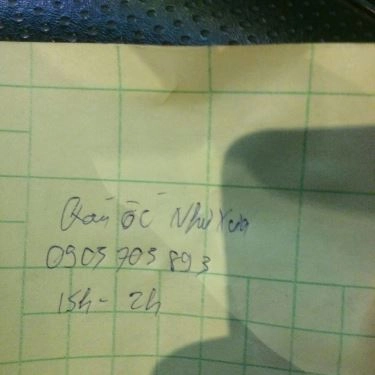 Quán ốc Như Xưa
0905 705 893
15h - 2h